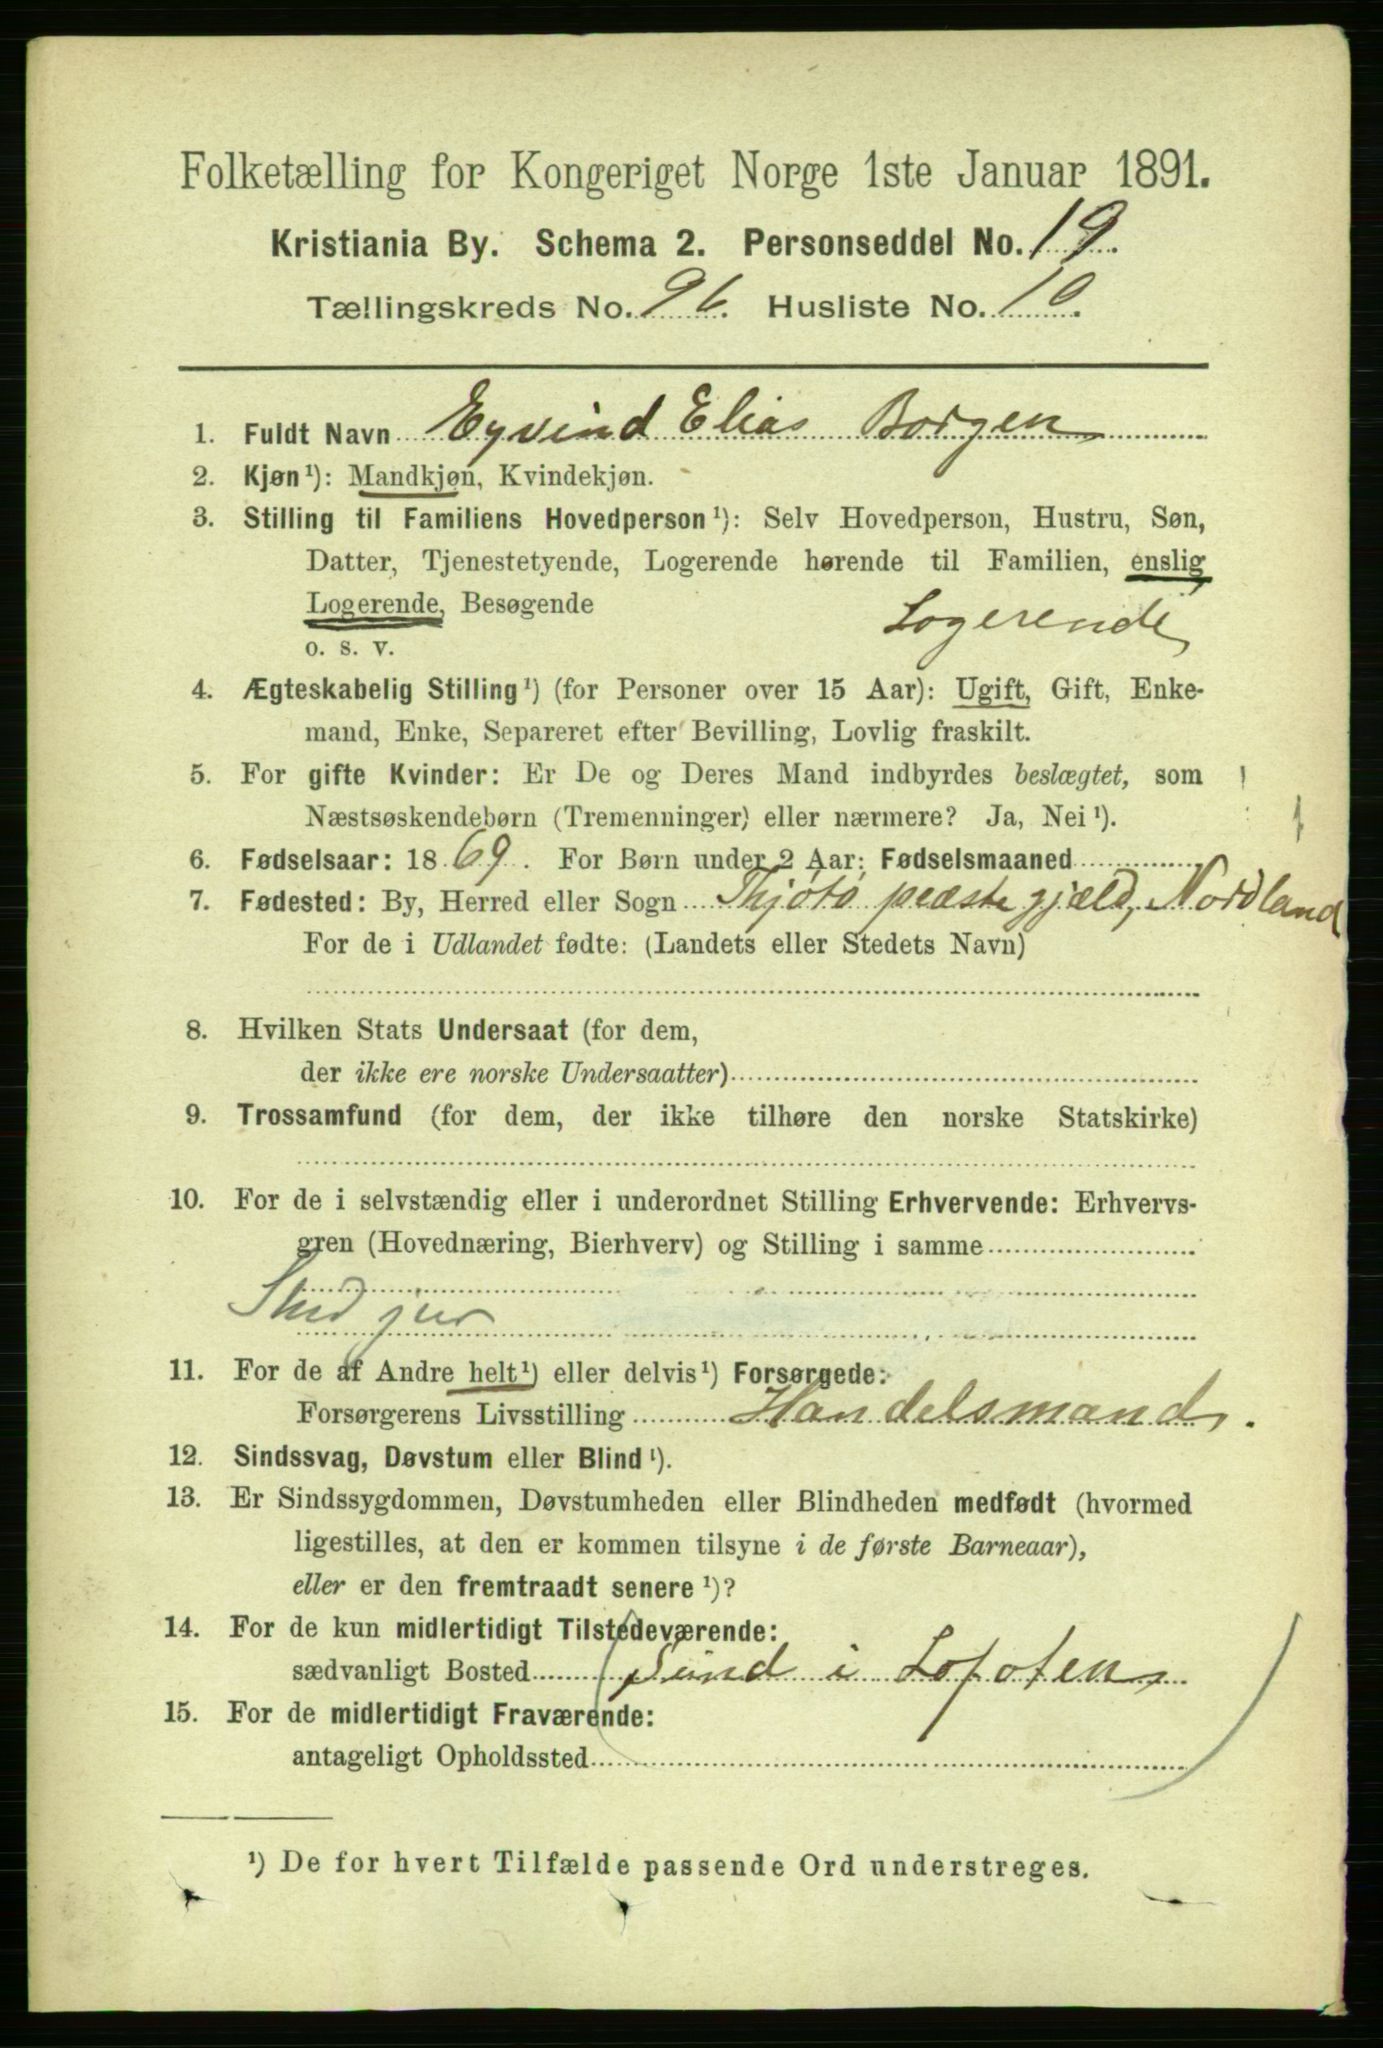 Folketælling for Kongeriget Norge 1ste Januar 1891.
Kristiania By. Schema 2. Personseddel No. 19.
Tællingskreds No. 96. Husliste No. 10.
1. Fuldt Navn Eyvind Elias Borgen
2. Kjøn¹): Mandkjøn, Kvindekjøn.
3. Stilling til Familiens Hovedperson¹): Selv Hovedperson, Hustru, Søn,
Datter, Tjenestetyende, Logerende hørende til Familien, enslig
Logerende, Besøgende Logerende
o. s. v.
4. Ægteskabelig Stilling¹) (for Personer over 15 Aar): Ugift, Gift, Enke-
mand, Enke, Separeret efter Bevilling, Lovlig fraskilt.
5. For gifte Kvinder: Er De og Deres Mand indbyrdes beslægtet, som
Næstsøskendebørn (Tremenninger) eller nærmere? Ja, Nei¹).
6. Fødselsaar: 1869. For Børn under 2 Aar: Fødselsmaaned
7. Fødested: By, Herred eller Sogn Thjøtø præstegjæld, Nordland
For de i Udlandet fødte: (Landets eller Stedets Navn)
8. Hvilken Stats Undersaat (for dem,
der ikke ere norske Undersaatter)
9. Trossamfund (for dem, der ikke tilhøre den norske Statskirke)
10. For de i selvstændig eller i underordnet Stilling Erhvervende: Erhvervs-
gren (Hovednæring, Bierhverv) og Stilling i samme
Stud jur
11. For de af Andre helt¹) eller delvis¹) Forsørgede:
Forsørgerens Livsstilling Handelsmand.
12. Sindssvag, Døvstum eller Blind¹).
13. Er Sindssygdommen, Døvstumheden eller Blindheden medfødt (hvormed
ligestilles, at den er kommen tilsyne i de første Barneaar),
eller er den fremtraadt senere¹)?
14. For de kun midlertidigt Tilstedeværende:
sædvanligt Bosted (Sund i Lofoten)
15. For de midlertidigt Fraværende:
antageligt Opholdssted
¹) De for hvert Tilfælde passende Ord understreges.